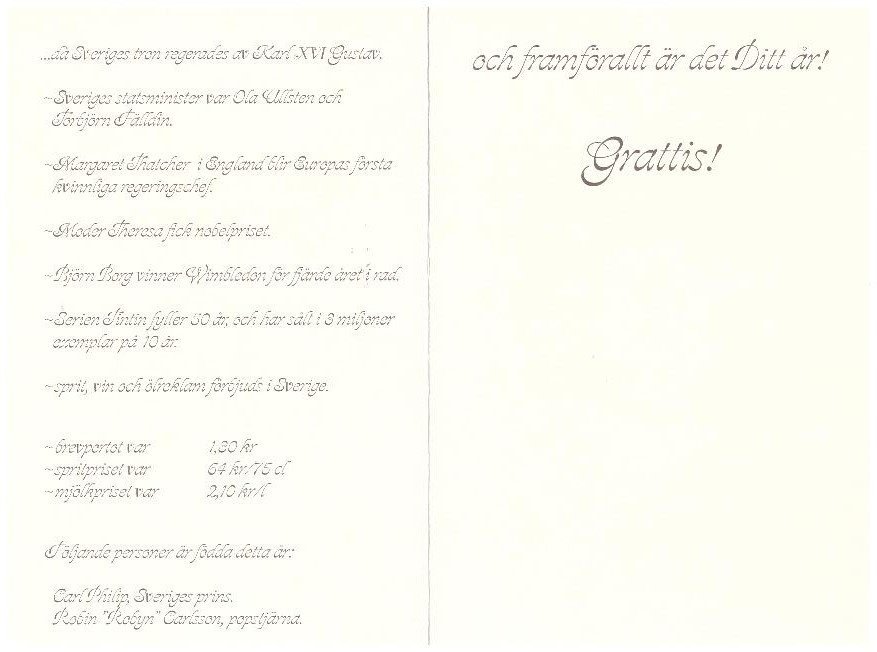 ...då Sveriges tron regerades av Karl XVI Gustav.
~Sveriges statsminister var Ola Ullsten och
Torbjörn Fälldin.
~Margaret Thatcher i England blir Europas första
kvinnliga regeringschef.
~Moder Theresa fick nobelpriset.
~Björn Borg vinner Wimbledon för fjärde året i rad.
~Serien Tintin fyller 50 år, och har sålt i 3 miljoner
exemplar på 10 år.
~sprit, vin och ölreklam förbjuds i Sverige.
~brevportot var 1,30 kr
~spritpriset var 64 kr/75 cl
~mjölkpriset var 2,10 kr/l
Följande personer är födda detta år:
Carl Philip, Sveriges prins.
Robin "Robyn" Carlsson, popstjärna.
och framförallt är det Ditt år!
Grattis!